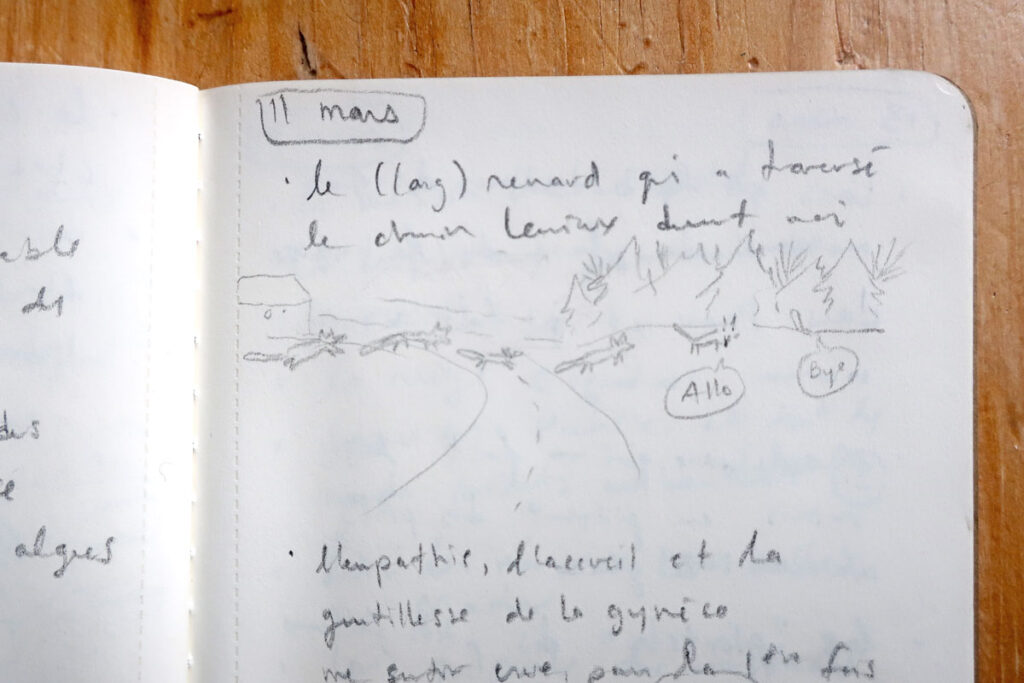 eable
des
des
algues
11 mars
• le (long) renard qui a traversé
le chemin Lemieux devant moi
Allo
Bye
• l'empathie, l'accueil et la
gentillesse de la gynéco
me sentir envie, pour la fois